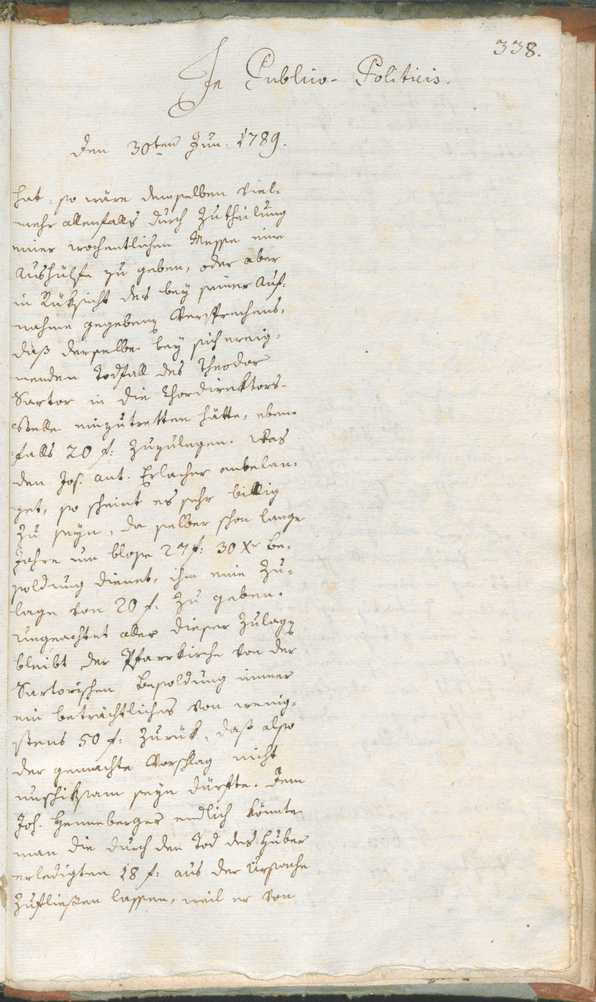 338.
In Publico-Politicis.
den 30ten Jun. 1789.
hat, so wäre demselben viel-
mehr allenfalls durch Zutheilung
einer wochentlichen Messe eine
Aushülfe zu geben, oder aber
in Rüksicht des bey seiner Auf-
nahme gegebenen Versprechens,
daß derselbe bey sich ereig-
nenden Todfall des Theodor
Sartor in die Chordirektors-
stelle einzutretten hätte, eben-
falls 20 f: zuzulegen. Was
den Jos. Ant. Erlacher anbelan-
get, so scheint es sehr billig
zu seyn, da selber schon lange
Jahre um blose 27 f: 30 Xr Be-
soldung dienet, ihm eine Zu-
lage von 20 f: zu geben.
Ungeachtet aber dieser Zulage
bleibt der Pfarrkirche von der
Sartorischen Besoldung immer
ein beträchtliches von wenig-
stens 50 f: zurük, daß also
der gemachte Vorschlag nicht
unschiksam seyn dürfte. Dem
Joh. Henneberger endlich könnte
man die durch den Tod des Huber
erledigten 18 f: aus der Ursache
zufließen lassen, weil er von